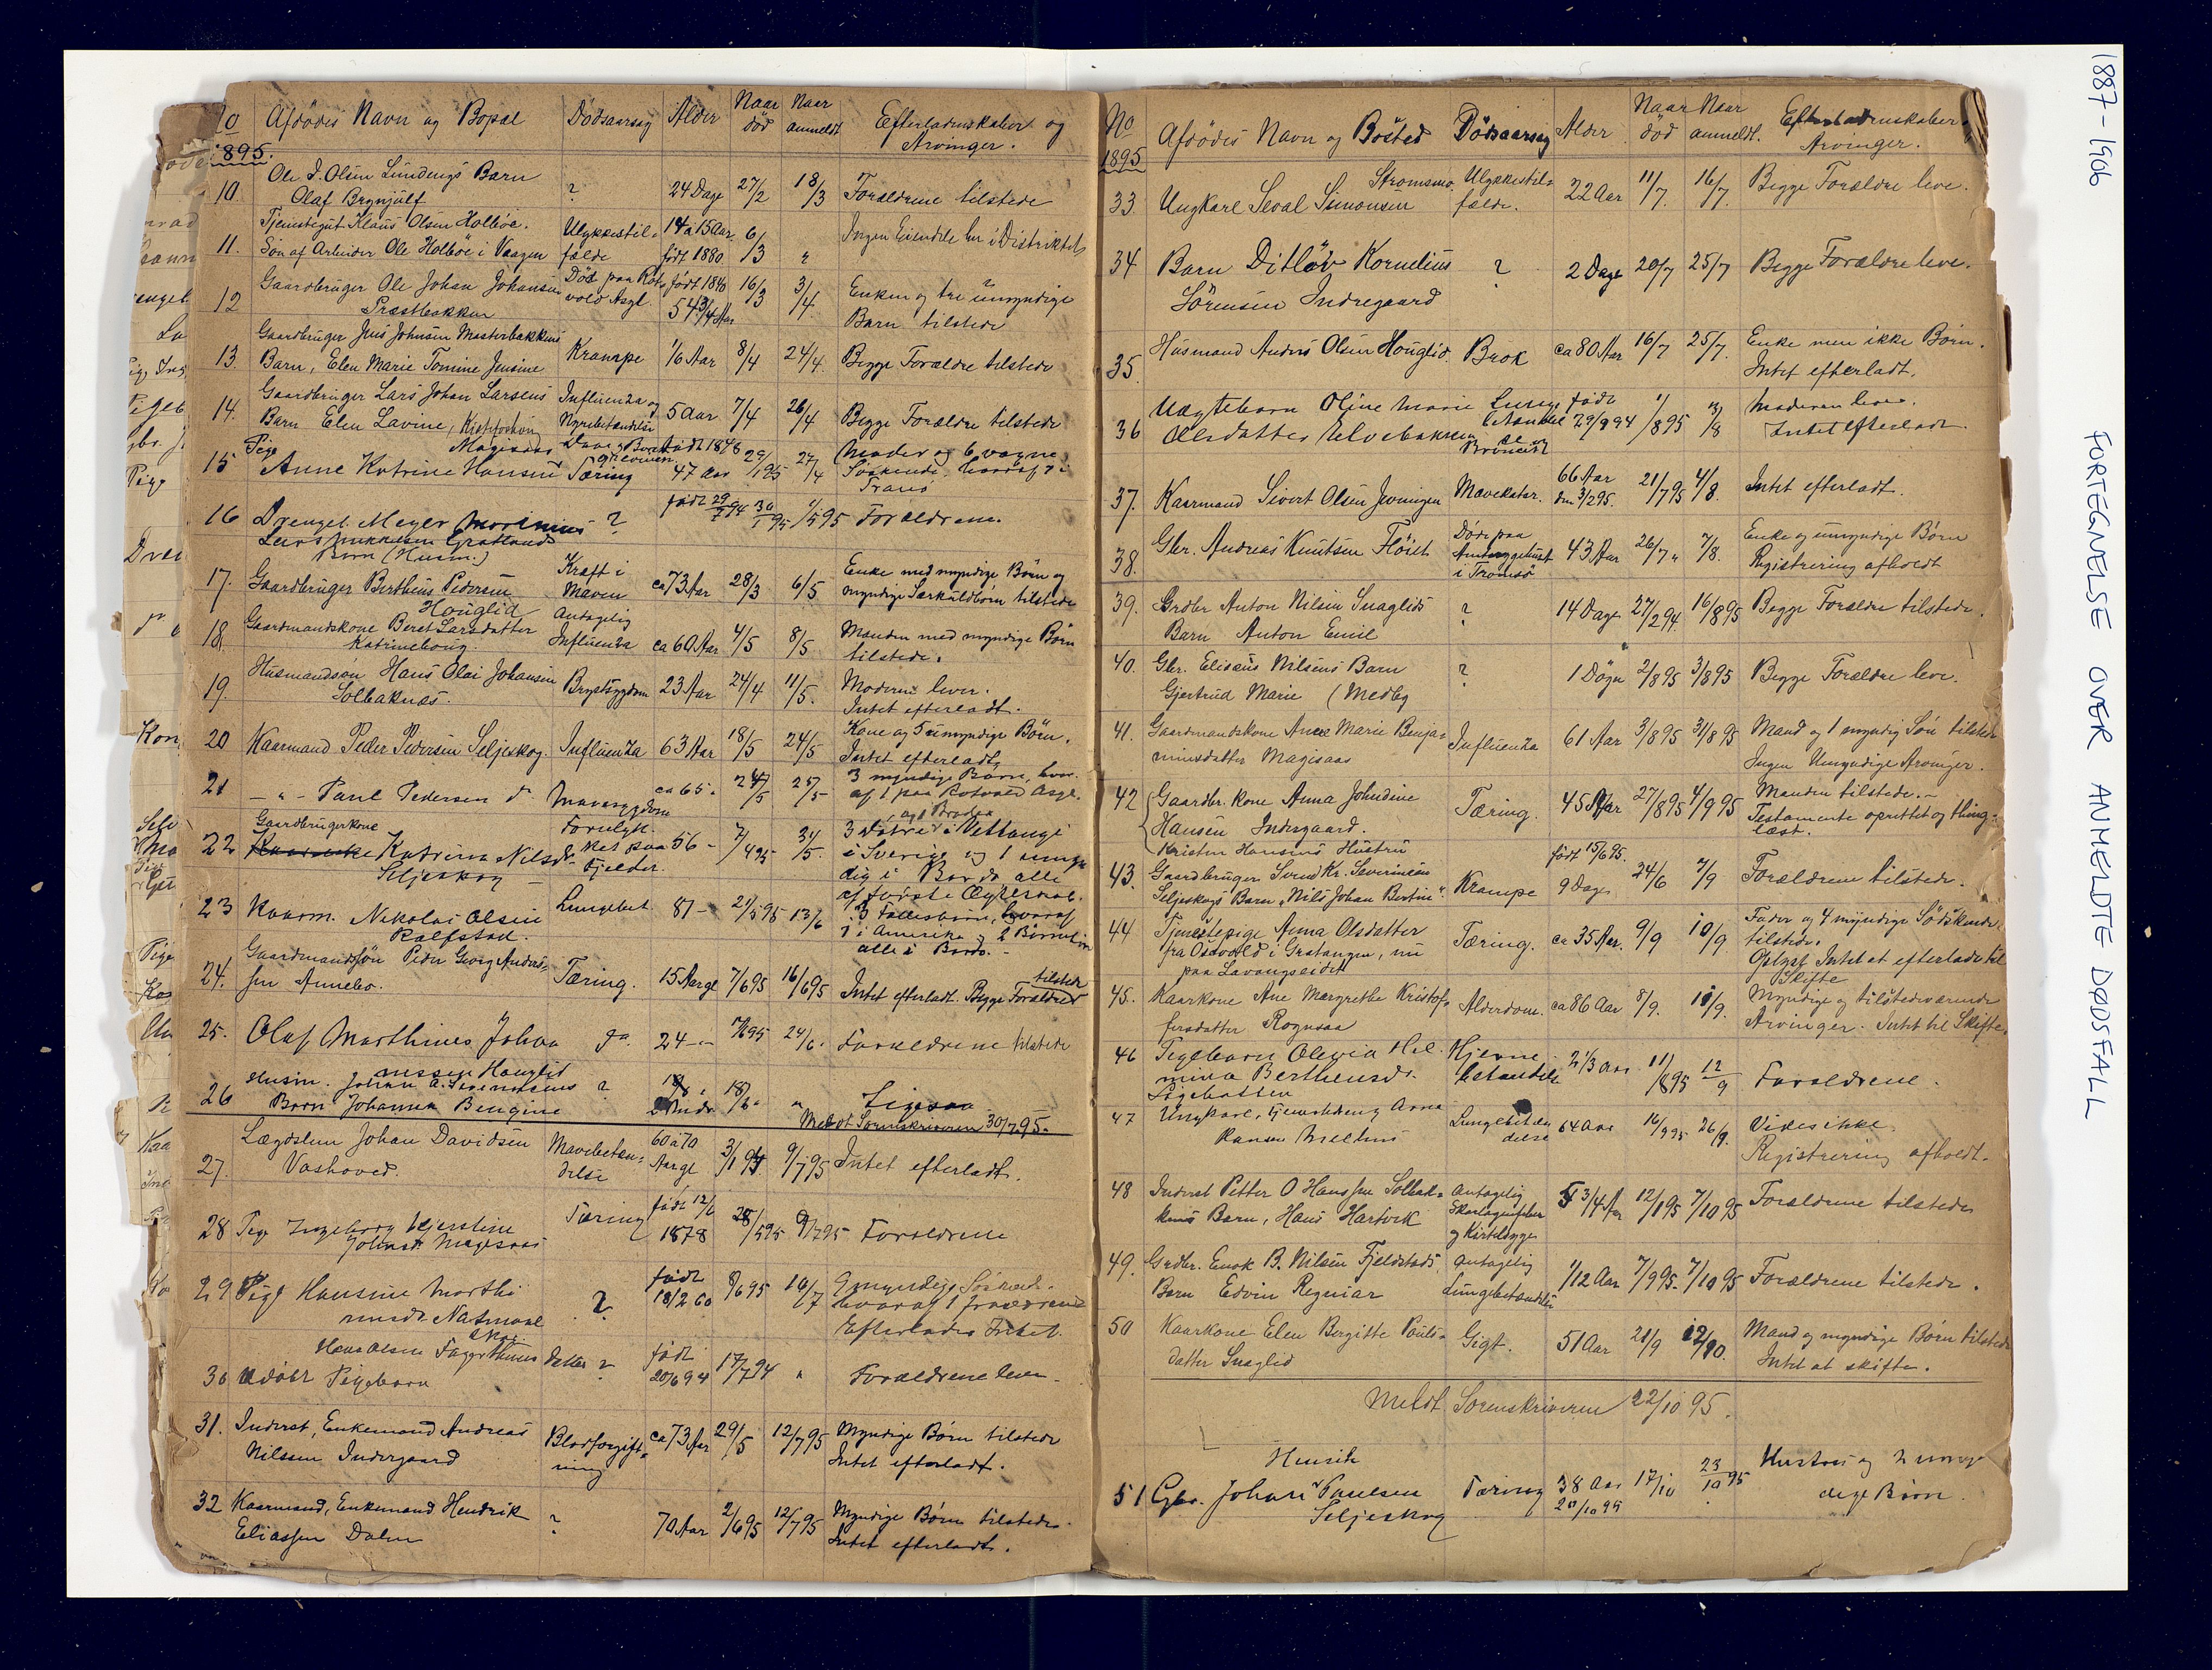 No Afdödes Navn og Bopæl Dödsaarsag Alder Naar död Naar anmeldt Efterladenskaber og Arvinger.
1895.
10. Ole J. Olsen Lundengs Barn
Olaf Brynjülf ? 24 Dage 27/2 18/3 Forældrene tilstede
11. Tjenestegut Klaus Olsen Holböe.
Sön af Arbeider Ole Holböe i Vaagen Ulykkestilfælde 14 a 15 Aar. födt 1880 6/3 " Ingen Eiendele her i Distriktet
12 Gaardbruger Ole Johan Johansen
Præstbakken Död paa Rotvold Asyl. födt 1840 54 3/4 Aar 16/3 3/4. Enken og tre umyndige
Børn tilstede
13. Gaardbruger Jens Johnsen Masterbakkens
Barn, Elen Marie Tomine Jensine Krampe 1/6 Aar 8/4 24/4. Begge Forældre tilstede
14. Gaardbruger Lars Johan Larsens
Barn Elen Lavine, Influenza og Nyrebetændelse 5 Aar 7/4 26/4 Begge Forældre tilstede
15 Pige Magisaas
Anne Katrine Hansen Tæring födt 1848 47 Aar 29/1 95 27/4 Moder og 6 voxne
Söskende, hvoraf 1 i
Tranö
16 Drengeb. Meyer Morinius ? födt 29/7 94 30/1 95 1/5 95 Forældrene.
Lars Mikkelsen Gratlands
Barn (Husm.)
17. Gaardbruger Bertheus Pedersen
Houglid Kræft i Maven ca 73 Aar 28/3 6/5 Enke med myndige Börn og
myndige Særkuldbörn tilstede
18. Gaardmandskone Beret Larsdatter
Katrineboug. Antagelig Influenza ca 60 Aar 4/5 8/5 Manden med myndige Børn
tilstede.
19. Husmandsön Hans Olai Johansen
Solbaknæs. Brystsygdom 23 Aar 24/4 11/5. Moderen lever.
Intet efterladt.
20 Kaarmand Peder Pedersen Seljeskog. Influenza 63 Aar 18/5 24/5 Kone og 5 umyndige Börn.
Intet efterladt
21 — " — Paul Pedersen d° Mavesygdom ca 65 " 24/5 25/5 3 myndige Børn, hvoraf
1 paa Rotvold Asyl.
22 Gaardbrugerkone
Katrina Nilsd.
Seljeskog Forulyk-ket paa Fjeldet. 56 – 7/4 95 31/5. 3 Døtre og 1 Broder i Vettangi
i Sverige og 1 umyndig
i Bardo alle
af første Ægteskab.
23 Kaarm. Nikolai Olsen
Kalfstad. Lungebet. 87 – 27/5 95 13/6 3 Fællesbørn, hvoraf
1 i Amerika og 2
alle i Bardo. –
24. Gaardmandssön Peder Georg Andersen
Annebo. Tæring. 15 Aar gl 7/6 95 16/6 95 Intet efterladt. Begge Forældre tilstede
25. Olaf Marthines Johannessen Houglid d° 24 – 7/6 95 24/6. Forældrene tilstede
26 Husm. Johan A. Severinsens
Barn Johanna Bengine ? 2 Mdr. 18/6 " " Ligesaa
Meldt Sorenskriveren 30/7 95.
27. Lægdslem Johan Davidsen
Vashoved. Mavebetændelse 60 a 70 Aar gl 3/1 95. 9/7 95 Intet efterladt.
28 Pige Ingeborg Kjerstine
Johnsd. Magesaas Tæring födt 12/6 1878 28/5 95 9/7 95 Forældrene
29 Pige Hansine Marthi
nusd. Natmaalsmo. ? födt 18/2 60 8/6 95 10/7 9 myndige Söskende
hvoraf 1 fraværende
Efterlades Intet.
30 Hans Olsen Fagerthuns Datter
udöbt Pigebarn ? födt 20/6 94 17/7 94 " Forældrene lever.
31. Inderst, Enkemand Andreas
Nilssen Indergaard Blodforgiftning ca 73 Aar 29/5 12/7 95 Myndige Børn tilstede
Intet efterladt.
32 Kaarmand, Enkemand Hendrik
Eliassen Dalen ? 70 Aar 2/6 95 12/7 95 Myndige Börn tilstede.
Intet efterladt.
No Afdödes Navn og Bosted Dödsaarsag Alder Naar död Naar anmeldt. Efterladenskaber Arvinger.
1895
33. Ungkarl Seval Simonsen Strømsmo. Ulykkestilfælde. 22 Aar 11/7. 16/7. Begge Forældre leve.
34 Barn Ditlöv Kornelius
Sörensen Indregaard ? 2 Dage 20/7 25/7 Begge Forældre leve.
35. Husmand Anders Olsen Houglid. Brok ca 80 Aar 16/7 25/7. Enke men ikke Börn.
Intet efterladt.
36 Uægtebarn Oline Marie
Olesdatter Elvebakken Lungebetændelse og Bronchit födt 29/9 94 1/8 95 3/8 Moderen lever.
Intet efterladt
37. Kaarmand Sivert Olsen Jensingen Mavekatar. 66 Aar den 3/2 95. 21/7 95 4/8. Intet efterladt.
38. Gbr. Andreas Knutsen Flöiet Döde paa Amtssygehuset i Tromsö 43 Aar 26/7 " 7/8. Enke og umyndige Børn
Registrering afholdt
39. Grdbr Anton Nilsen Snaglids
Barn Anton Emil ? 14 Dage 27/2 94. 16/8 95 Begge Forældre tilstede.
40. Gbr. Eliseus Nilsens Barn
Gjertrud Marie (Medby ? 1 Dögn 2/8 95 3/8 95 Begge Forældre leve.
41. Gaardmandskone Ane Marie Benja-
minsdatter Magisaas Influenza 61 Aar 3/8 95 31/8 95 Mand og 1 myndig Sön tilstede
Ingen Umyndige Arvinger.
42 Gaardbr. kone Anna Johndine
Hansen Indergaard.
Kristen Hansens Hustru Tæring. 45 Aar 27/8 95 4/9 95 Manden tilstede. –
Testamente oprettet og thing-
læst.
43. Gaardbruger Svend Kr. Severinsen
Seljeskogs Barn, "Nils Johan Bertin". Krampe födt 15/6 95. 9 Dage 24/6 7/9 Forældrene tilstede.
44 Tjenestepige Anna Olsdatter
fra Osdvold i Gratangen, nu
paa Lavangseidet Tæring. ca 35 Aar. 9/9 10/9. Fader og 4 myndige Södskende
tilstede.
Oplyst Intet at efterlade til
Skifte
45. Kaarkone Ane Margrethe Kristof-
fersdatter Rognsaa Alderdom. ca 86 Aar 8/9. 10/9. Myndige og tilstedeværende
Arvinger. Intet til Skifte.
46 Pigebarn Olewia Hel
mina Berthensd.
Hjernebetændelse 2 1/3 Aar 11/8 95 12/9 Forældrene.
47 Ungkarl, Tjenestedreng Arne
Hansen Melhus Lungebetændelse 64 Aar 14/9 95 26/9. Vides ikke.
Registrering afholdt.
48 Inderst Petter O Hanssen Solbak-
kens Barn, Hans Hartvik Antagelig Skarlagensfeber og Kirtelsyge 5 3/4 Aar 12/1 95 7/10 95 Forældrene tilstede
49. Grdbr. Enok B. Nilsen Fjeldstads
Barn Edvin Regniar Antagelig Lungebetændelse 1/12 Aar 7/9 95. 7/10 95 Forældrene tilstede.
50 Kaarkone Elen Birgitte Pouls-
datter Snaglid Gigt. 51 Aar 21/9 12/10. Mand og myndige Børn tilstede
Intet at skifte.
Meldt Sorenskriveren 22/10 95.
51 Gbr. Johan Henrik Paulsen
Seljeskog Tæring 38 Aar 20/10 95 17/10 23/10 95 Hustru og 2 umyn
dige Børn.
1887-1906 FORTEGNELSE OVER ANMELDTE DØDSFALL